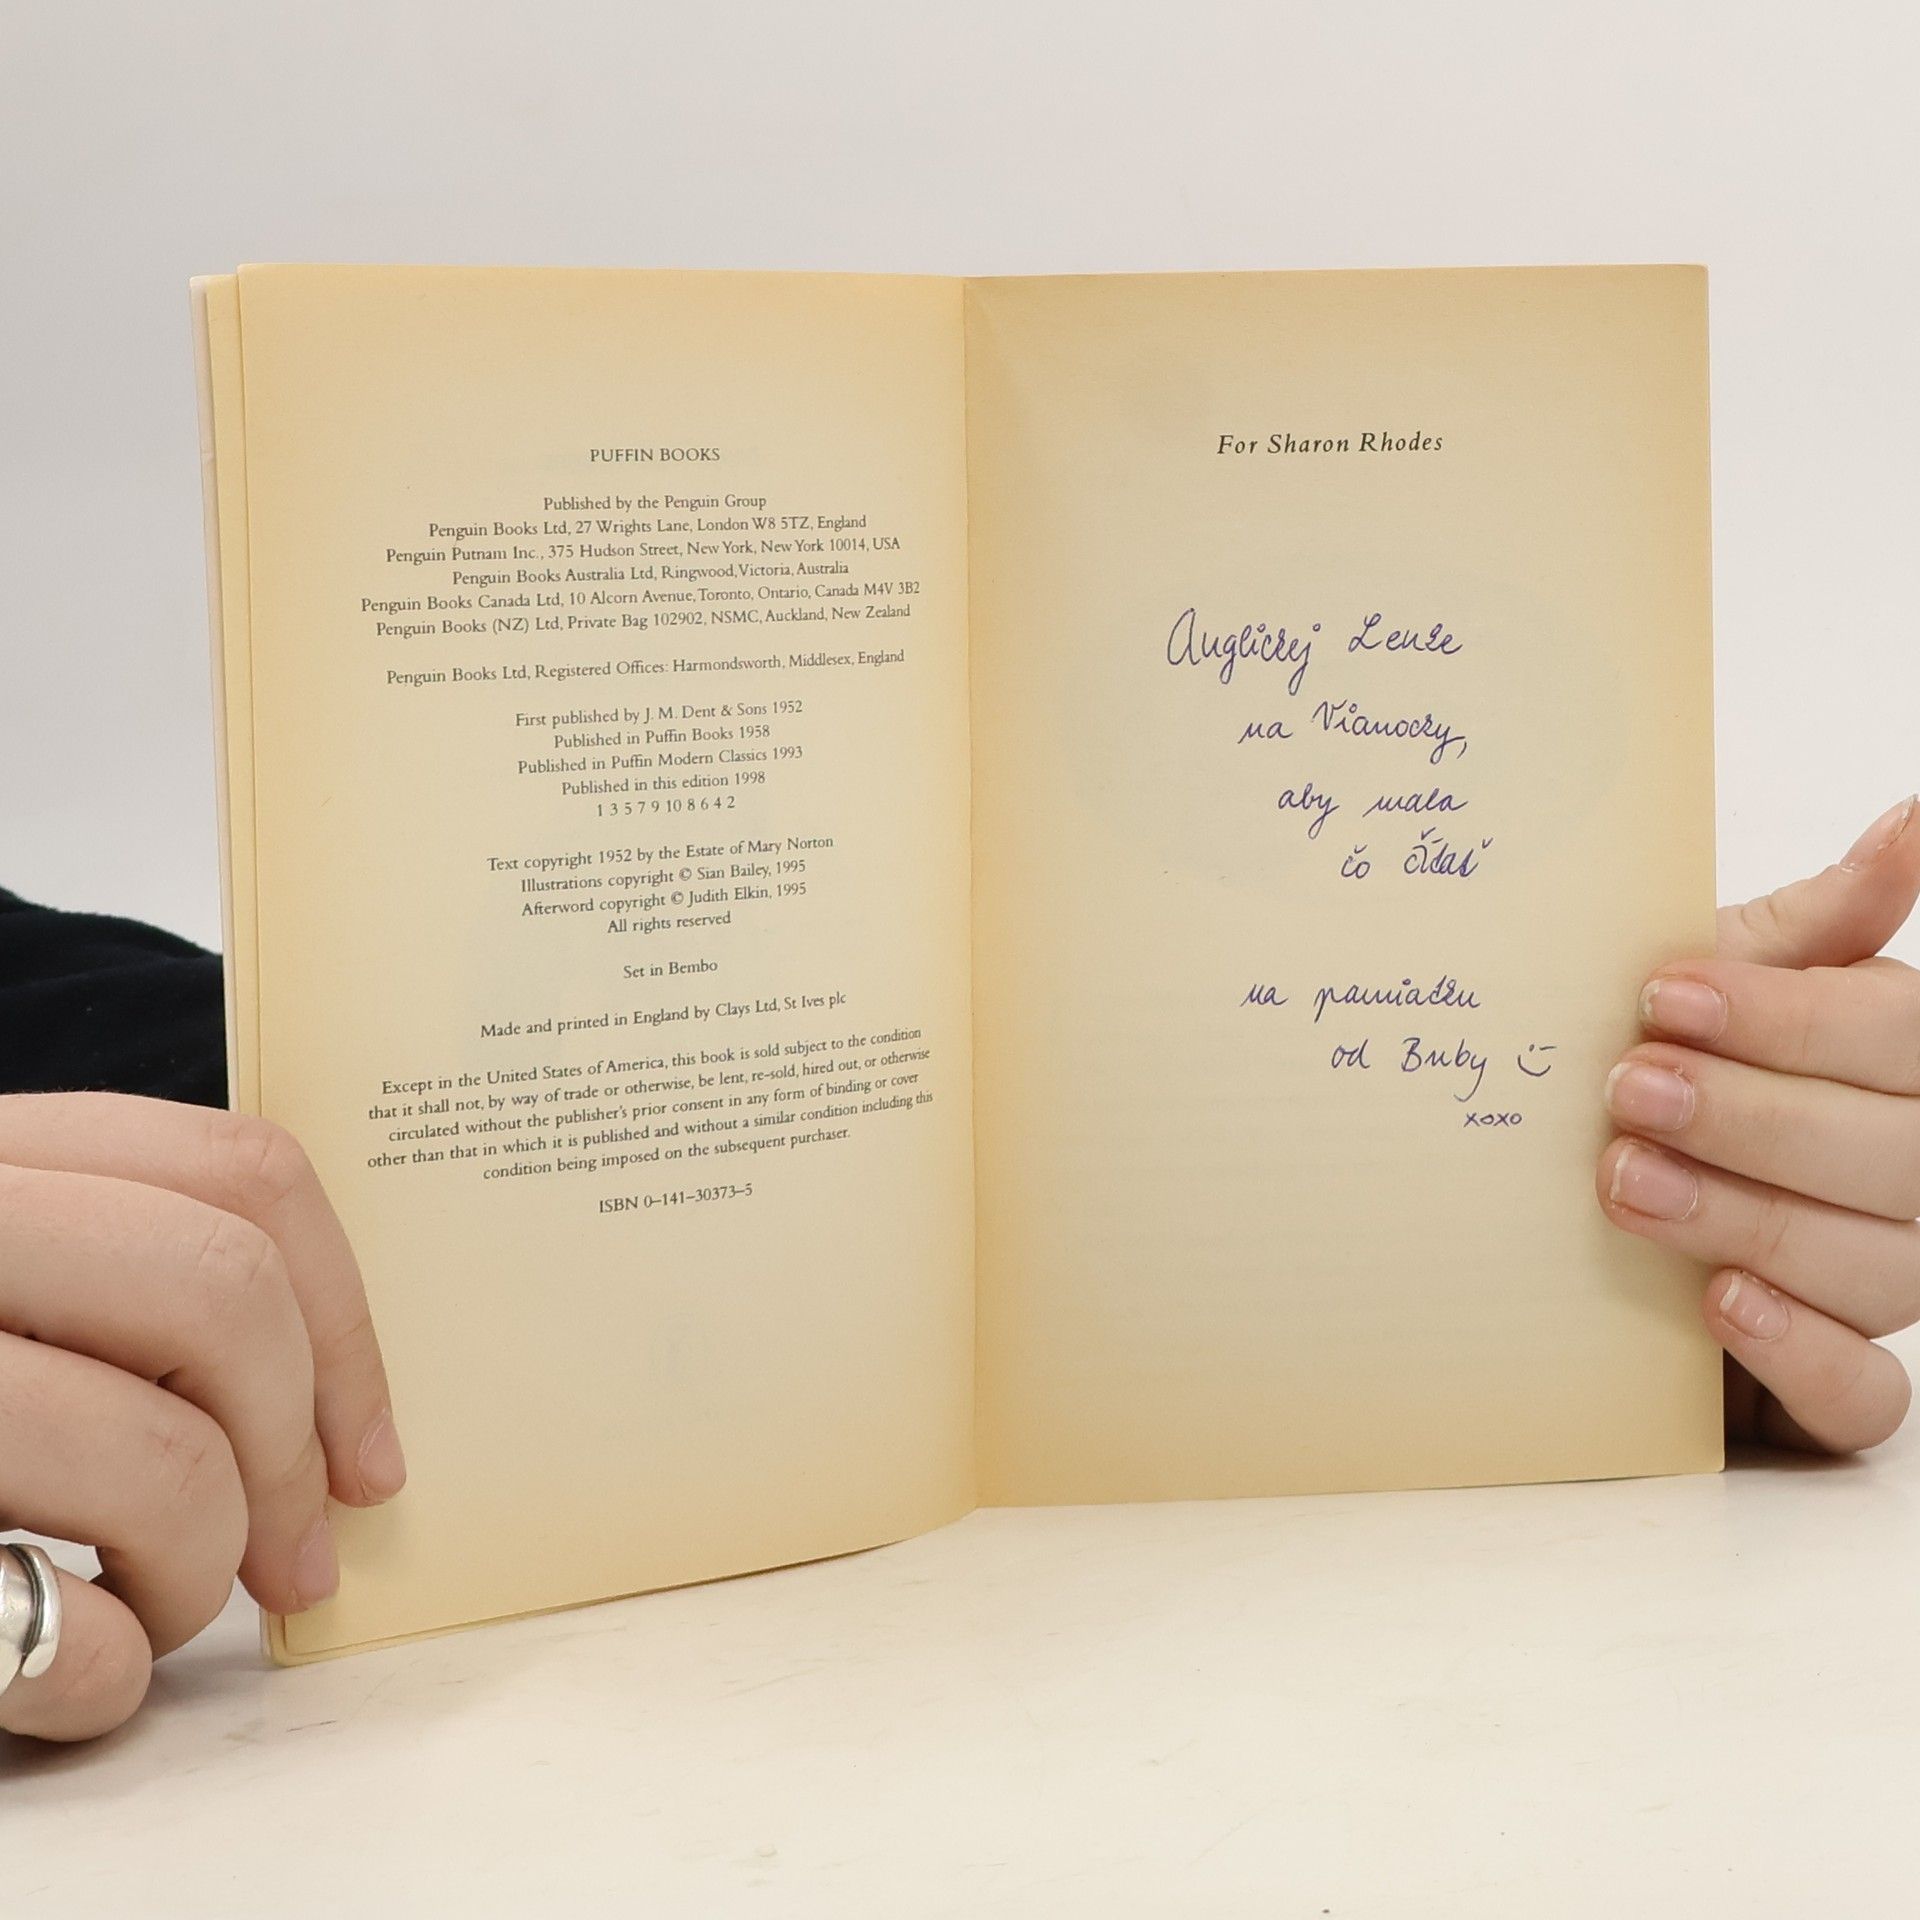 PUFFIN BOOKS
Published by the Penguin Group
Penguin Books Ltd, 27 Wrights Lane, London W8 5TZ, England
Penguin Putnam Inc., 375 Hudson Street, New York, New York 10014, USA
Penguin Books Australia Ltd, Ringwood, Victoria, Australia
Penguin Books Canada Ltd, 10 Alcorn Avenue, Toronto, Ontario, Canada M4V 3B2
Penguin Books (NZ) Ltd, Private Bag 102902, NSMC, Auckland, New Zealand
Penguin Books Ltd, Registered Offices: Harmondsworth, Middlesex, England
First published by J. M. Dent & Sons 1952
Published in Puffin Books 1958
Published in Puffin Modern Classics 1993
Published in this edition 1998
1 3 5 7 9 10 8 6 4 2
Text copyright 1952 by the Estate of Mary Norton
Illustrations copyright © Sian Bailey, 1995
Afterword copyright © Judith Elkin, 1995
All rights reserved
Set in Bembo
Made and printed in England by Clays Ltd, St Ives plc
Except in the United States of America, this book is sold subject to the condition
that it shall not, by way of trade or otherwise, be lent, re-sold, hired out, or otherwise
circulated without the publisher's prior consent in any form of binding or cover
other than that in which it is published and without a similar condition including this
condition being imposed on the subsequent purchaser.
ISBN 0–141–30373–5
For Sharon Rhodes
Anglickej Lenke
na Vianocky,
aby mala
čo čítať
na pamiatku
od Buby :-)
xoxo